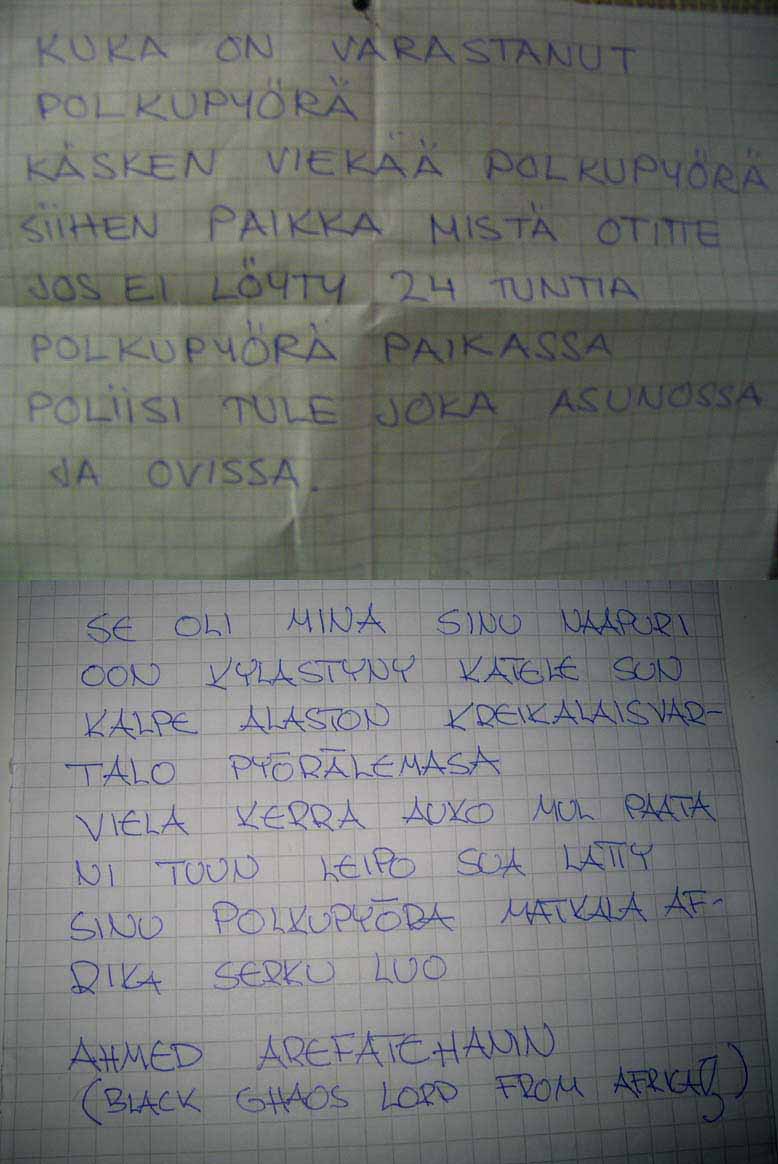 KUKA ON VARASTANUT
POLKUPYÖRÄ
KÄSKEN VIEKÄÄ POLKUPYÖRÄ
SIIHEN PAIKKA MISTÄ OTITTE
JOS EI LÖYTY 24 TUNTIA
POLKUPYÖRÄ PAIKASSA
POLIISI TULE JOKA ASUNOSSA
JA OVISSA.
SE OLI MINÄ SINU NAAPURI
OON KYLASTYNY KATELE SUN
KALPE ALASTON KREIKALAISVAR-
TALO PYÖRÄLEMASA
VIELA KERRA AUKO MUL PAATA
NI TUUN LEIPO SUA LATTY
SINU POLKUPYÖRA MATKALA AF-
RIKA SERKU LUO
AHMED AREFATEHANIN
(BLACK GHAOS LORD FROM AFRICA)